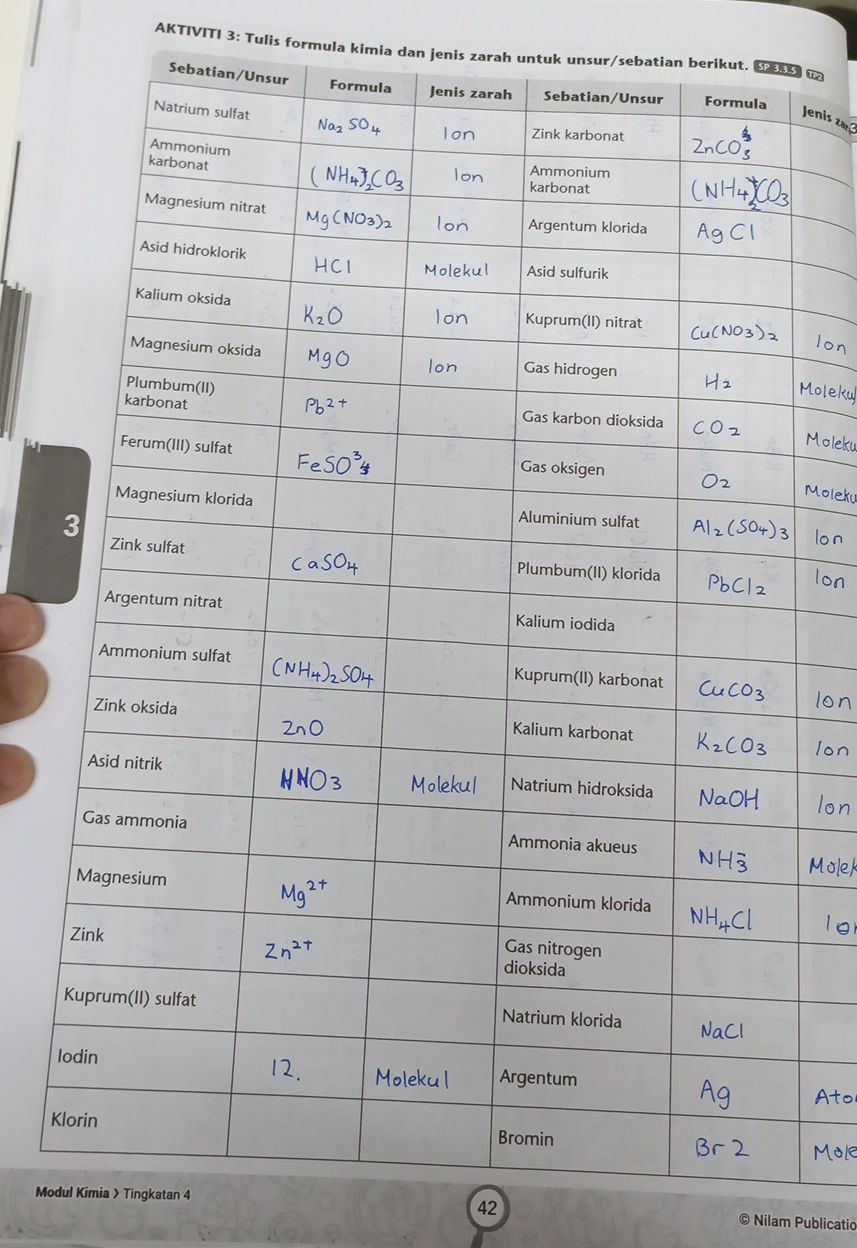 AKTIVITI 3: Tulis formula kimia dan jenis zarah untuk unsur/sebatian berikut. SP 3.3.5 TP2
Sebatian/Unsur Formula Jenis zarah Sebatian/Unsur Formula Jenis
Natrium sulfat Na2SO4 Ion Zink karbonat ZnCO3
Ammonium karbonat (NH4)2CO3 Ion Ammonium karbonat (NH4)2CO3
Magnesium nitrat Mg(NO3)2 Ion Argentum klorida AgCl
Asid hidroklorik HCl Molekul Asid sulfurik
Kalium oksida K2O Ion Kuprum(II) nitrat Cu(NO3)2 Ion
Magnesium oksida MgO Ion Gas hidrogen H2 Moleku
Plumbum(II) karbonat Pb2+ Gas karbon dioksida CO2 Moleku
Ferum(III) sulfat FeSO Gas oksigen O2 Moleku
Magnesium klorida Aluminium sulfat Al2(SO4)3 Ion
Zink sulfat CaSO4 Plumbum(II) klorida PbCl2 Ion
Argentum nitrat Kalium iodida
Ammonium sulfat (NH4)2SO4 Kuprum(II) karbonat CuCO3 Ion
Zink oksida ZnO Kalium karbonat K2CO3 Ion
Asid nitrik HNO3 Molekul Natrium hidroksida NaOH Ion
Gas ammonia Ammonia akueus NH3- Molek
Magnesium Mg2+ Ammonium klorida NH4Cl Ion
Zink Zn2+ Gas nitrogen dioksida
Kuprum(II) sulfat Natrium klorida NaCl
Iodin I2. Molekul Argentum Ag Ato
Klorin Bromin Br2 Mole
3
Modul Kimia > Tingkatan 4
42
© Nilam Publicatio